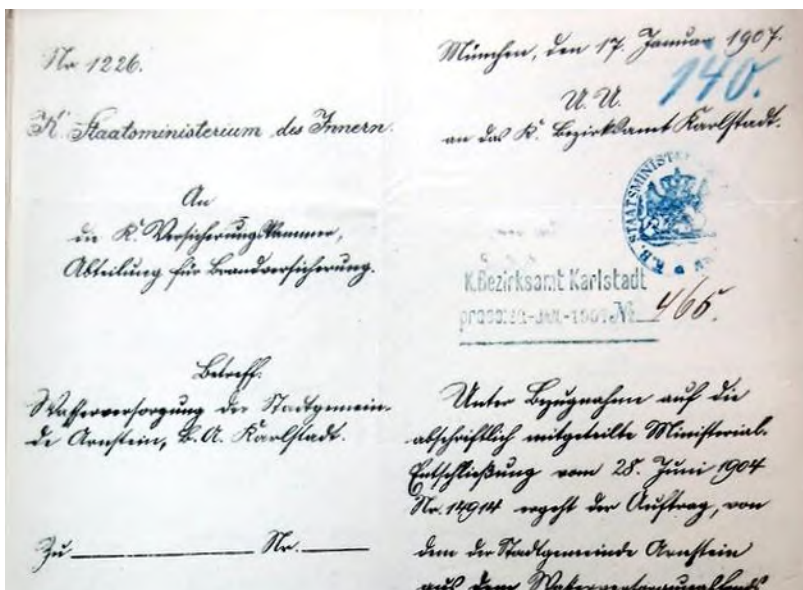 Nr 1226.
K. Staatsministerium des Innern.
An
die K. Versicherungskammer,
Abteilung für Brandversicherung.
Betreff.
Wasserversorgung der Stadtgemein-
de Arnstein, B.A. Karlstadt.
Zu Nr.
München, den 17. Januar 1907.
140.
U. U.
an das K. Bezirksamt Karlstadt.
K.B. STAATSMINIST
K.Bezirksamt Karlstadt
praes. JAN. No 465.
Unter Bezugnahme auf die
abschriftlich mitgeteilte Ministerial-
Entschließung vom 28. Juni 1904
Nr. 14914 ergeht der Auftrag, von
dem der Stadtgemeinde Arnstein
aus dem Wasserversorgungsfonds